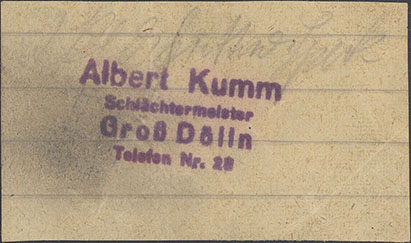 Albert Kumm
Schlächtermeister
Groß Dölln
Telefon Nr. 28